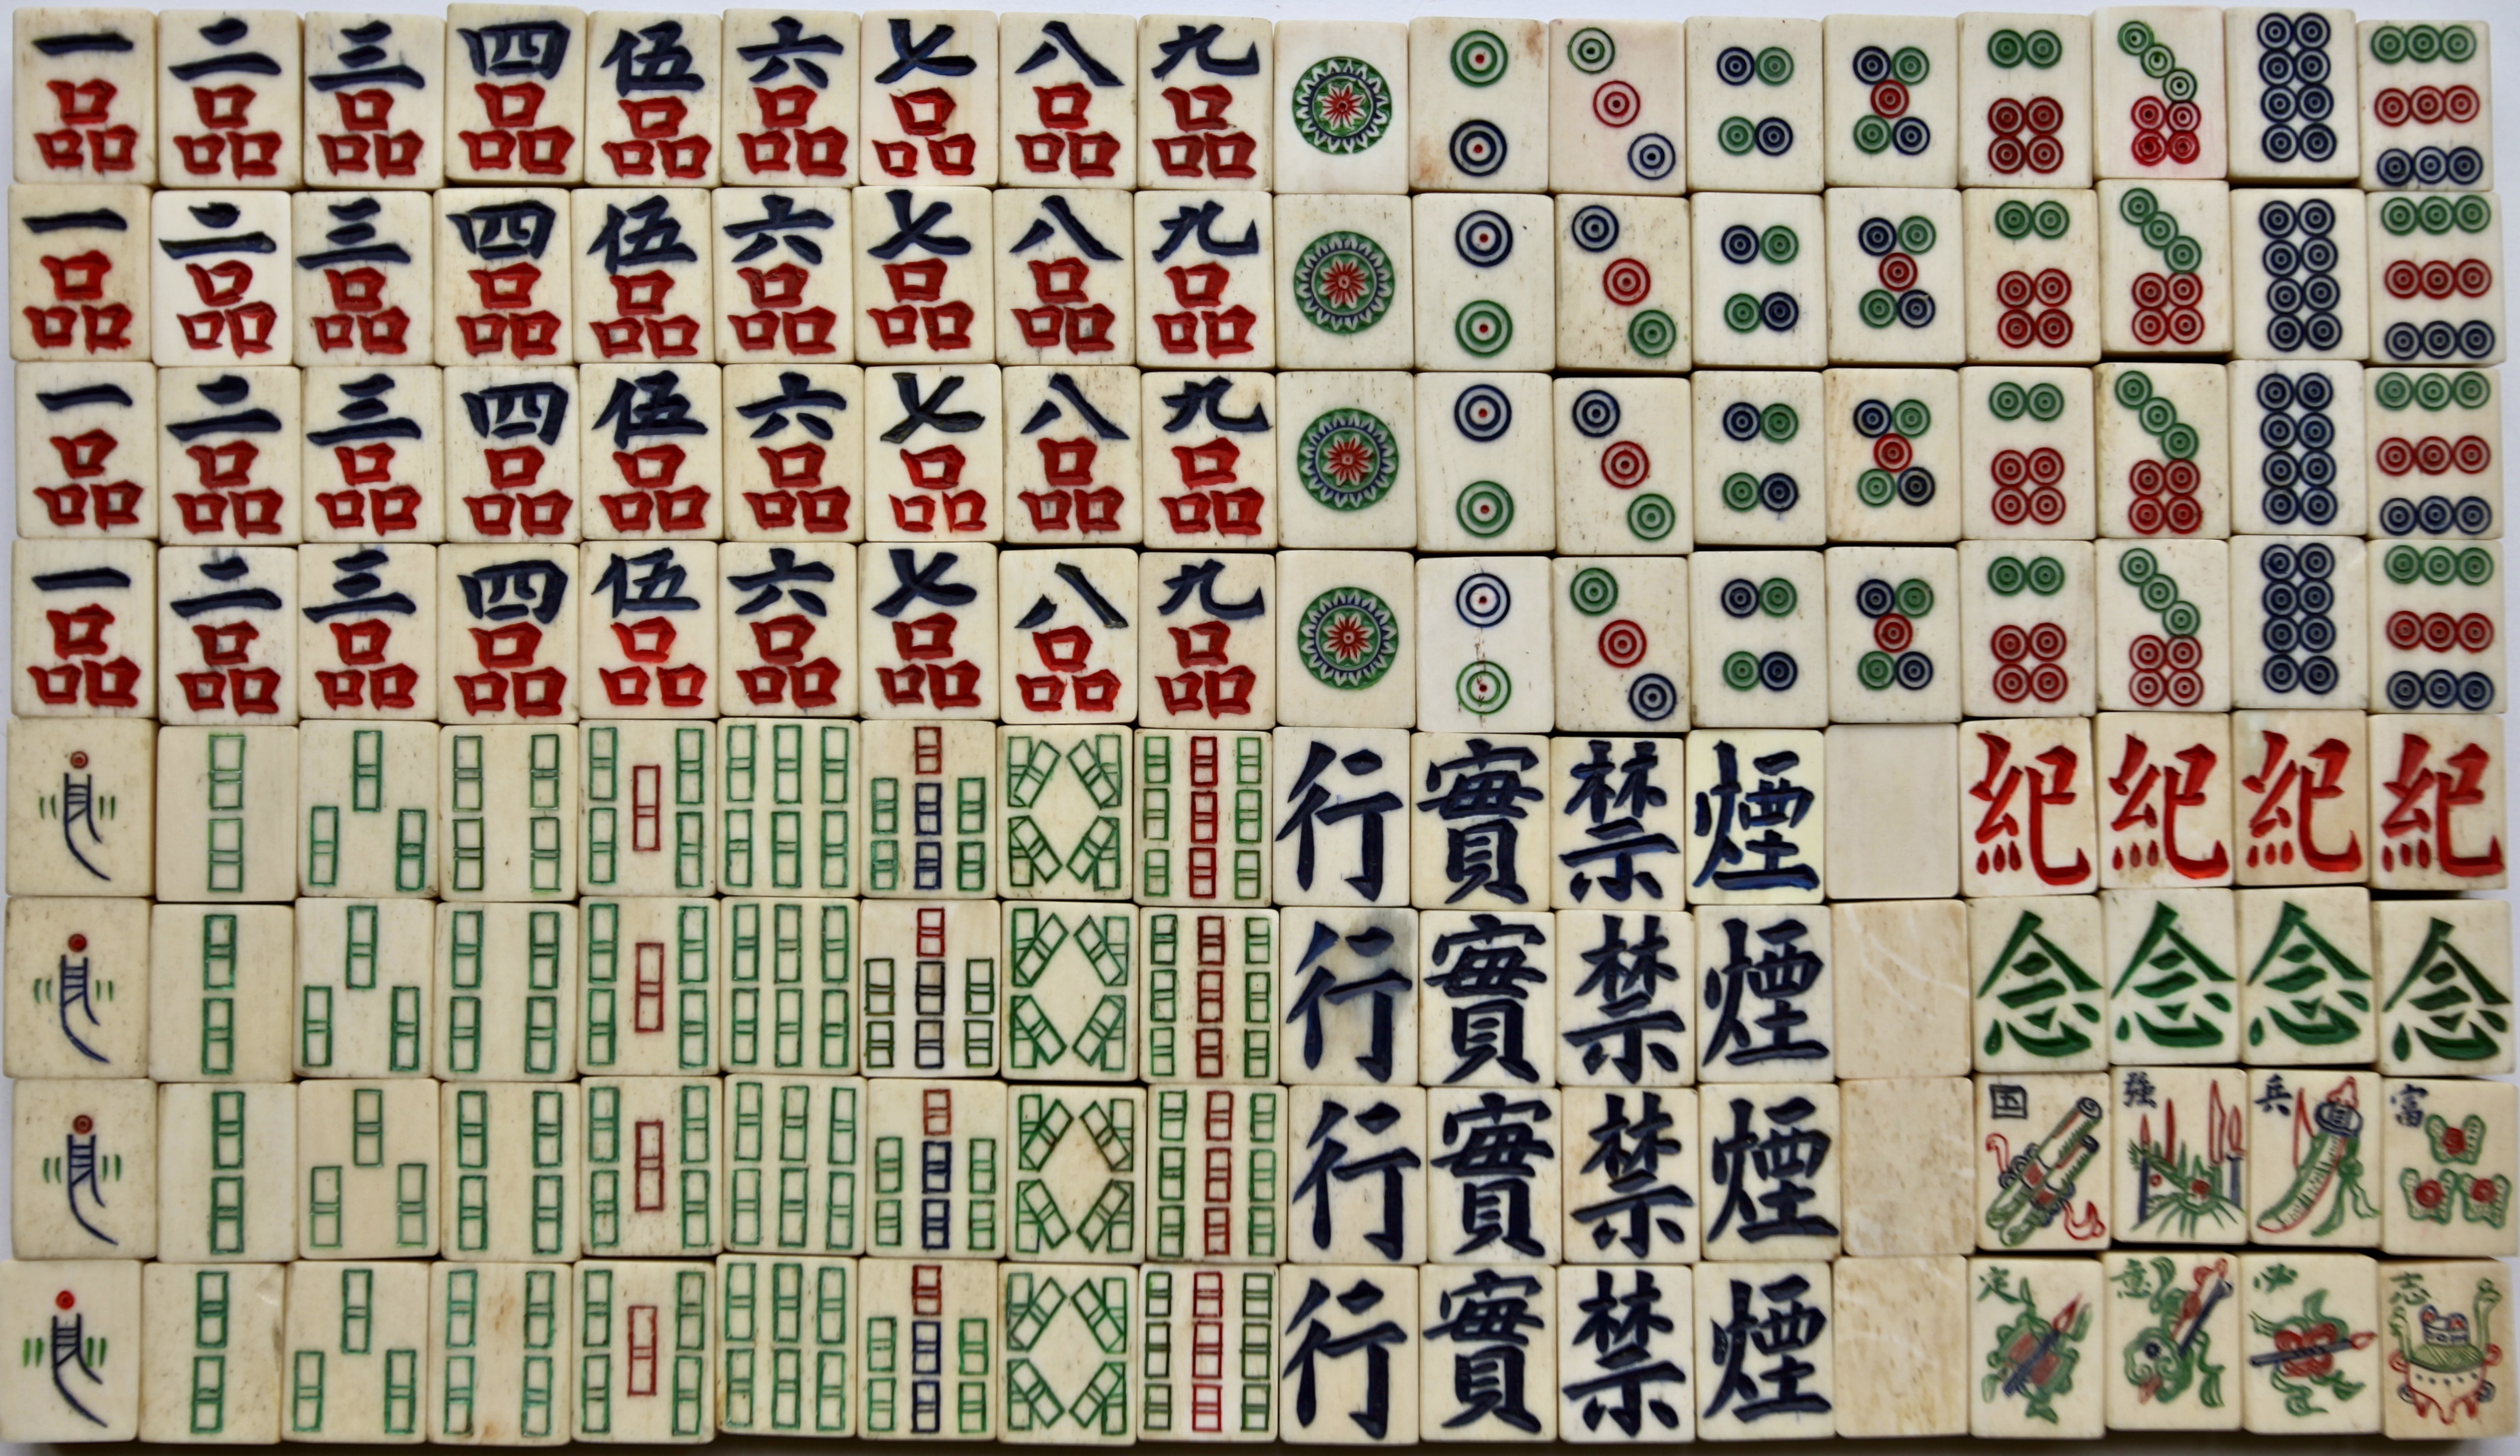 一品 二品 三品 四品 伍品 六品 七品 八品 九品
一品 二品 三品 四品 伍品 六品 七品 八品 九品
一品 二品 三品 四品 伍品 六品 七品 八品 九品
一品 二品 三品 四品 伍品 六品 七品 八品 九品
行 實 禁 煙 紀 紀 紀 紀
行 實 禁 煙 念 念 念 念
行 實 禁 煙 国 強 兵 富
行 實 禁 煙 定 意 必 志